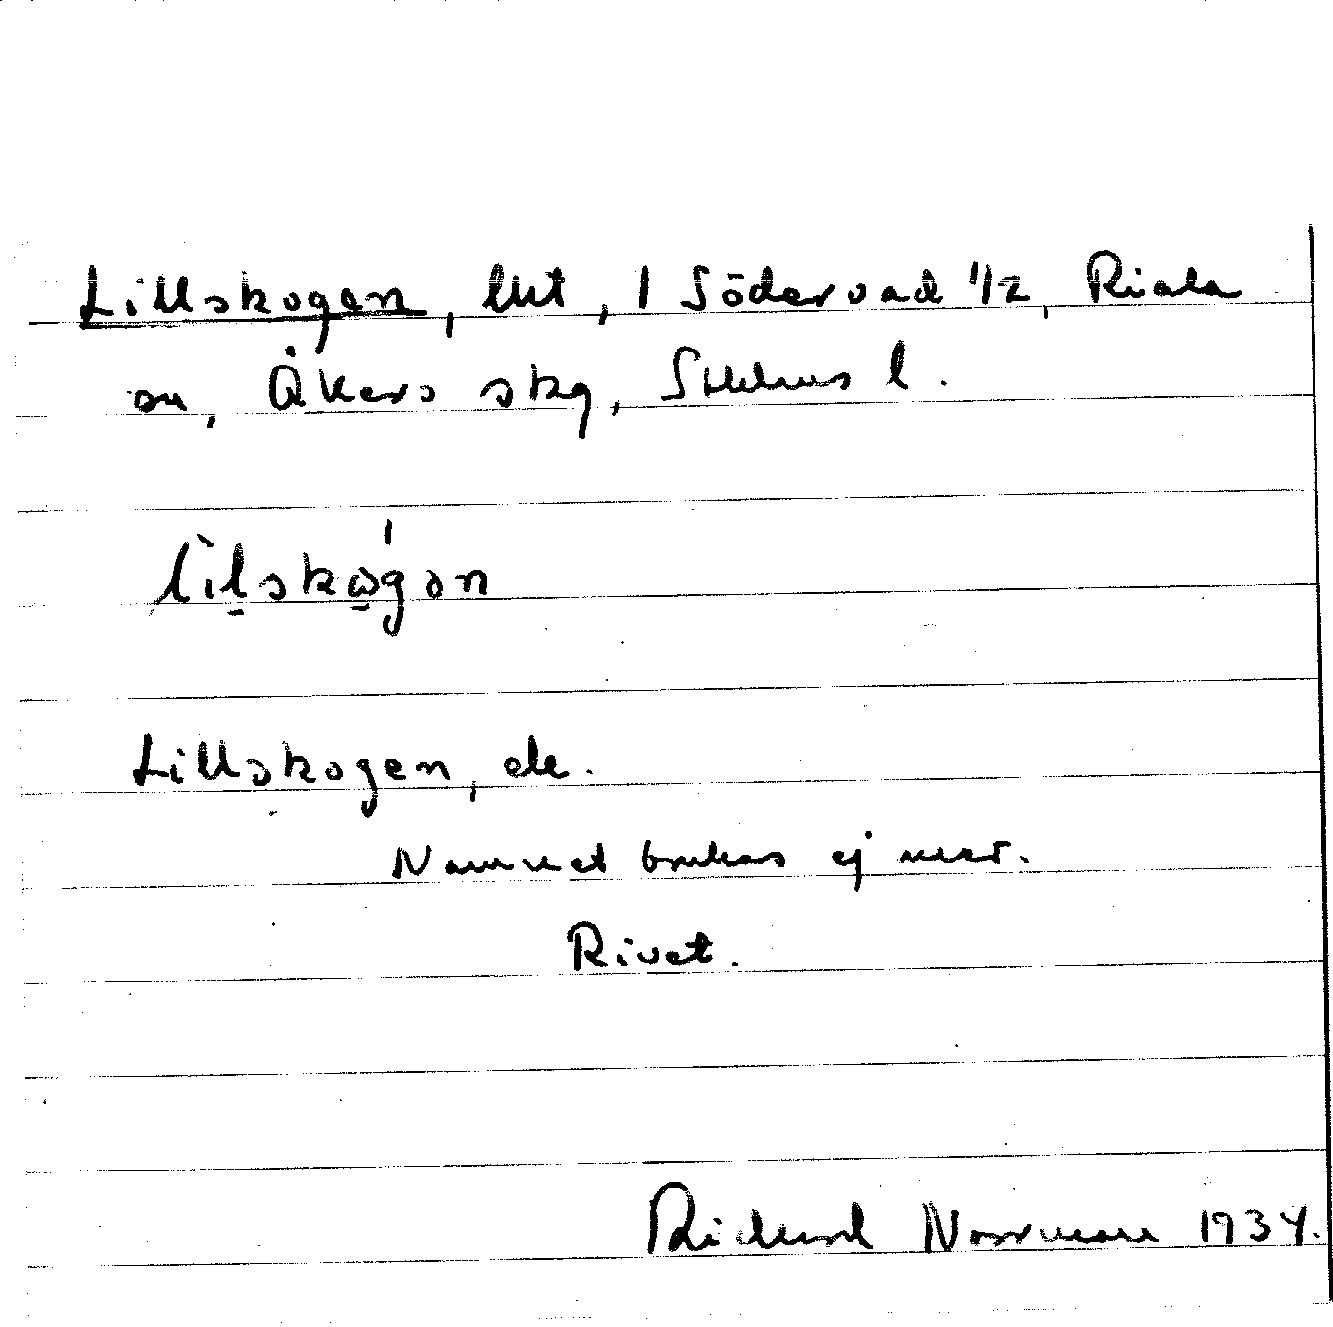 Lillskogen, lht, 1 Södervad 1/2, Riala
sn, Åkers skg, Sthlms l.
Lillskogen, de.
Namnet brukas ej mer.
Rivet.
Rickard Norrman 1934.